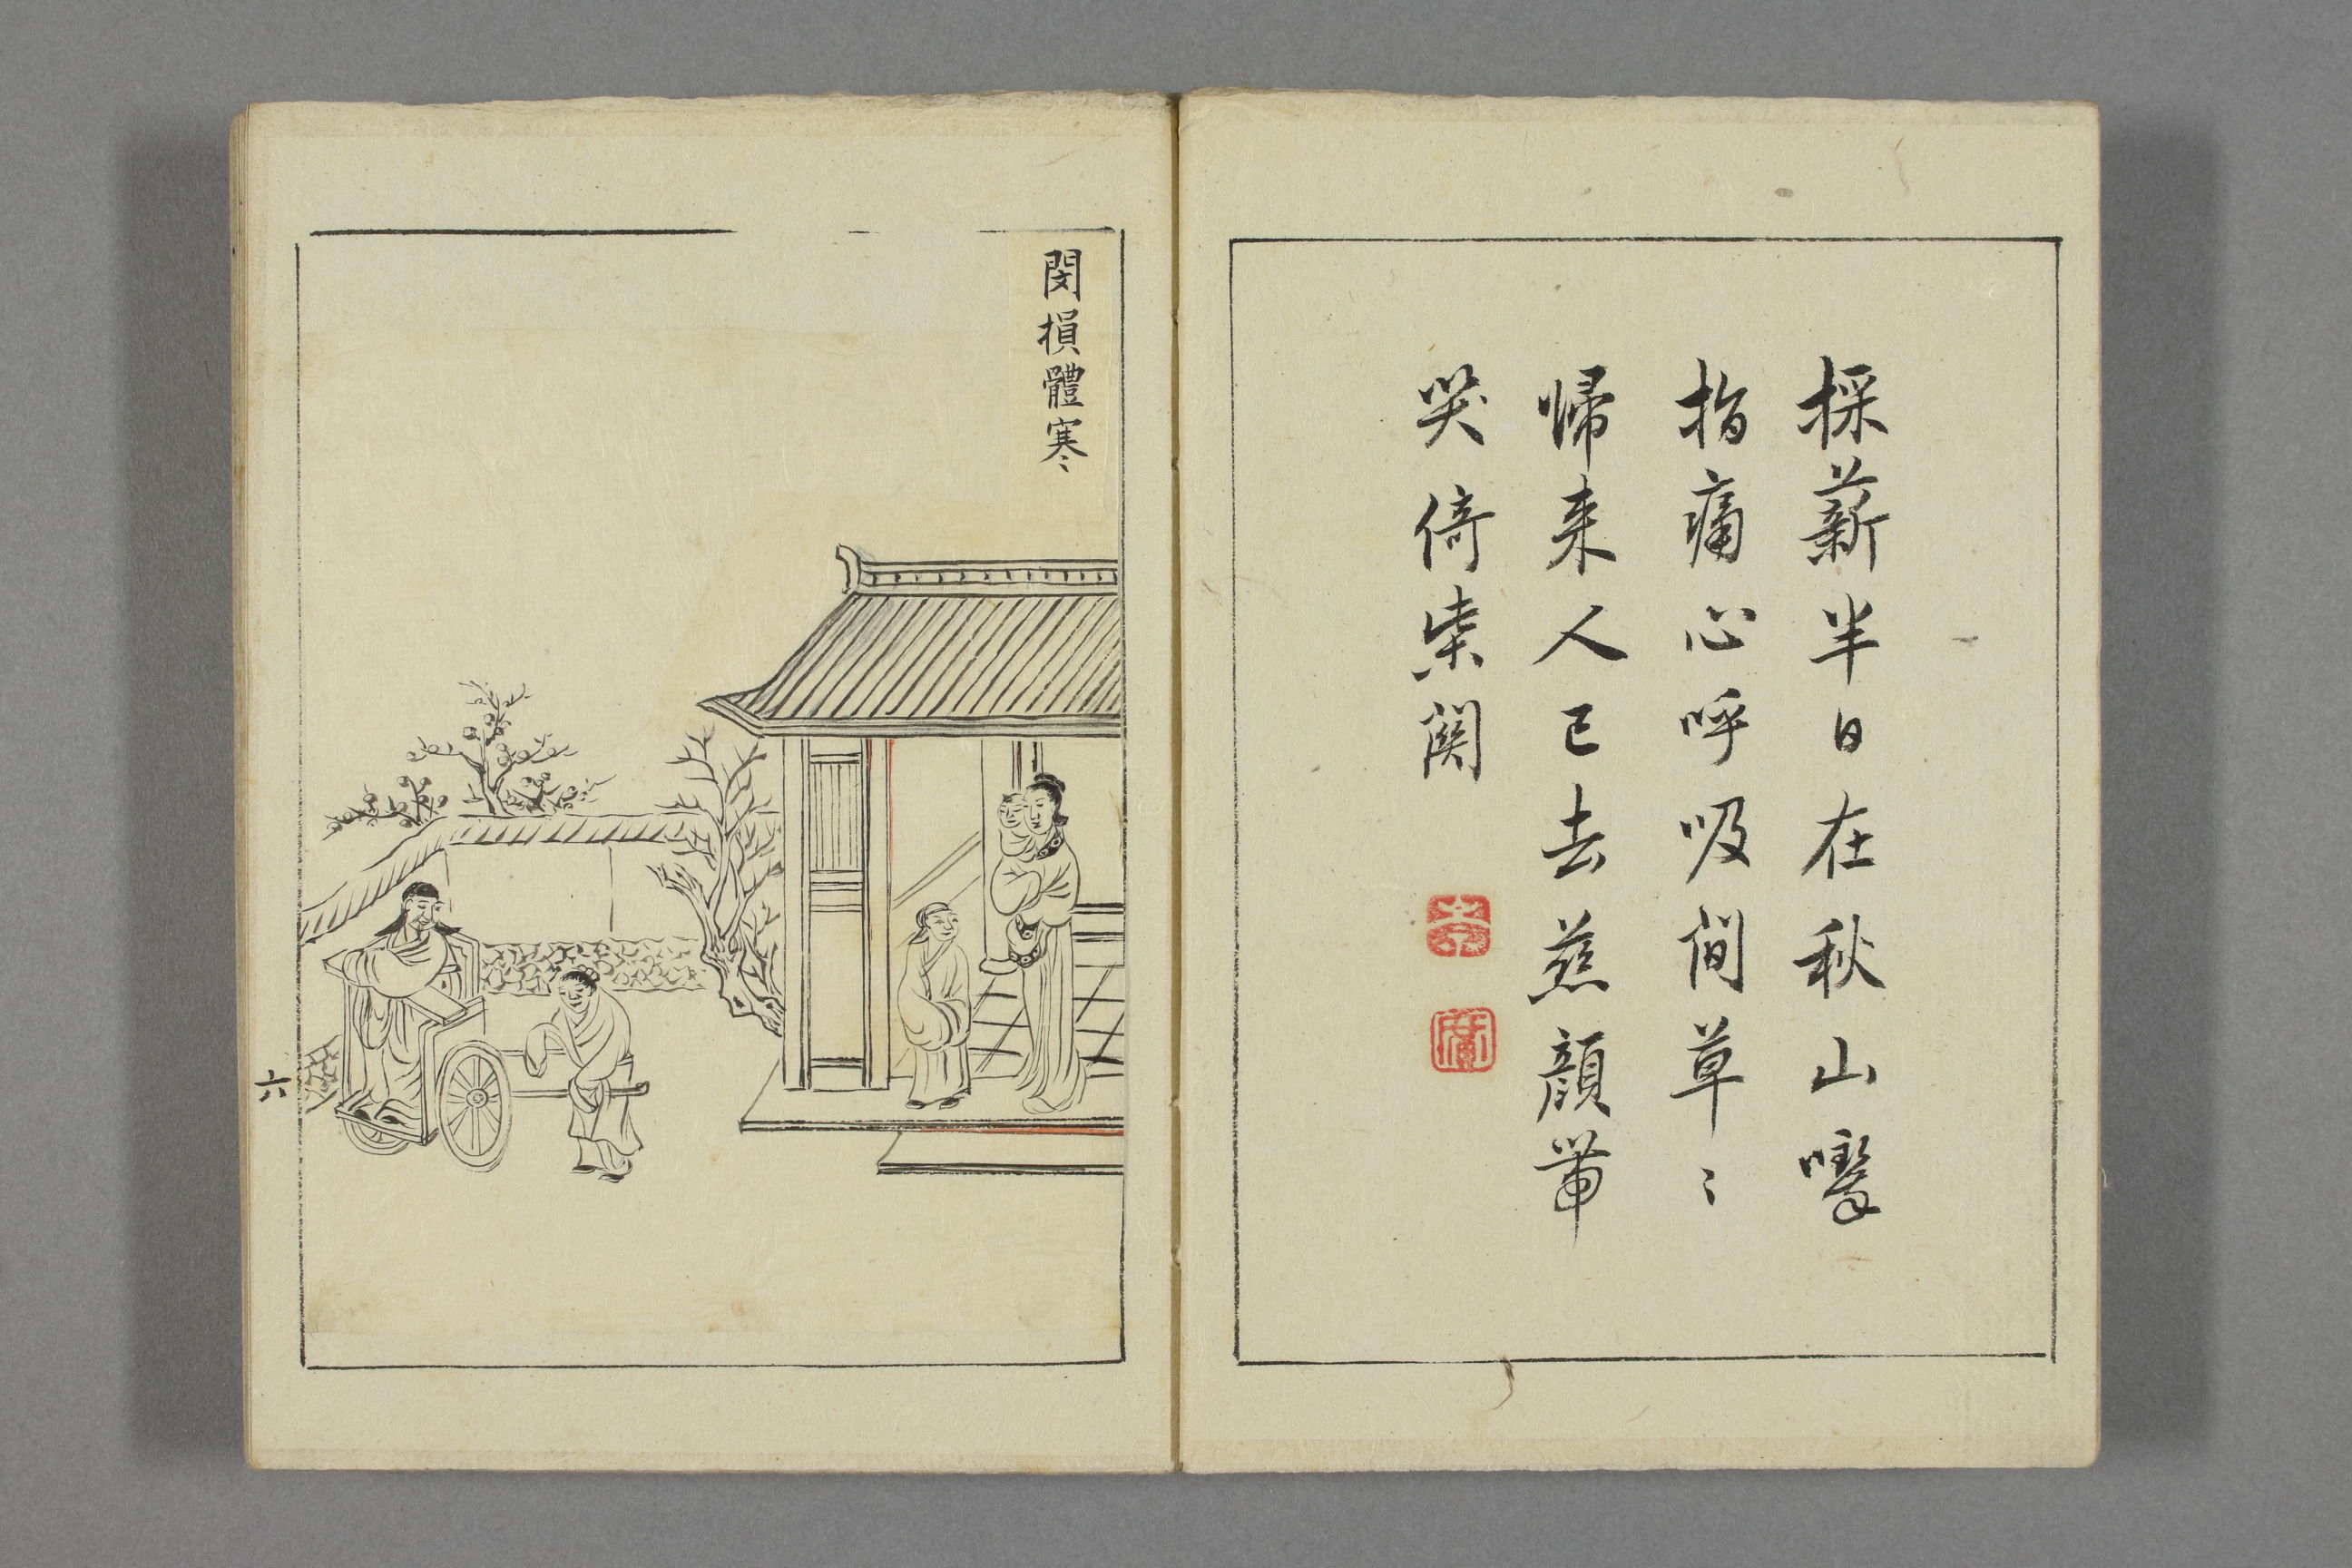 採薪半日在秋山
指痛心呼吸間草〻
帰来人已去慈顔帯
笑倚柴関
閔損體寒
六